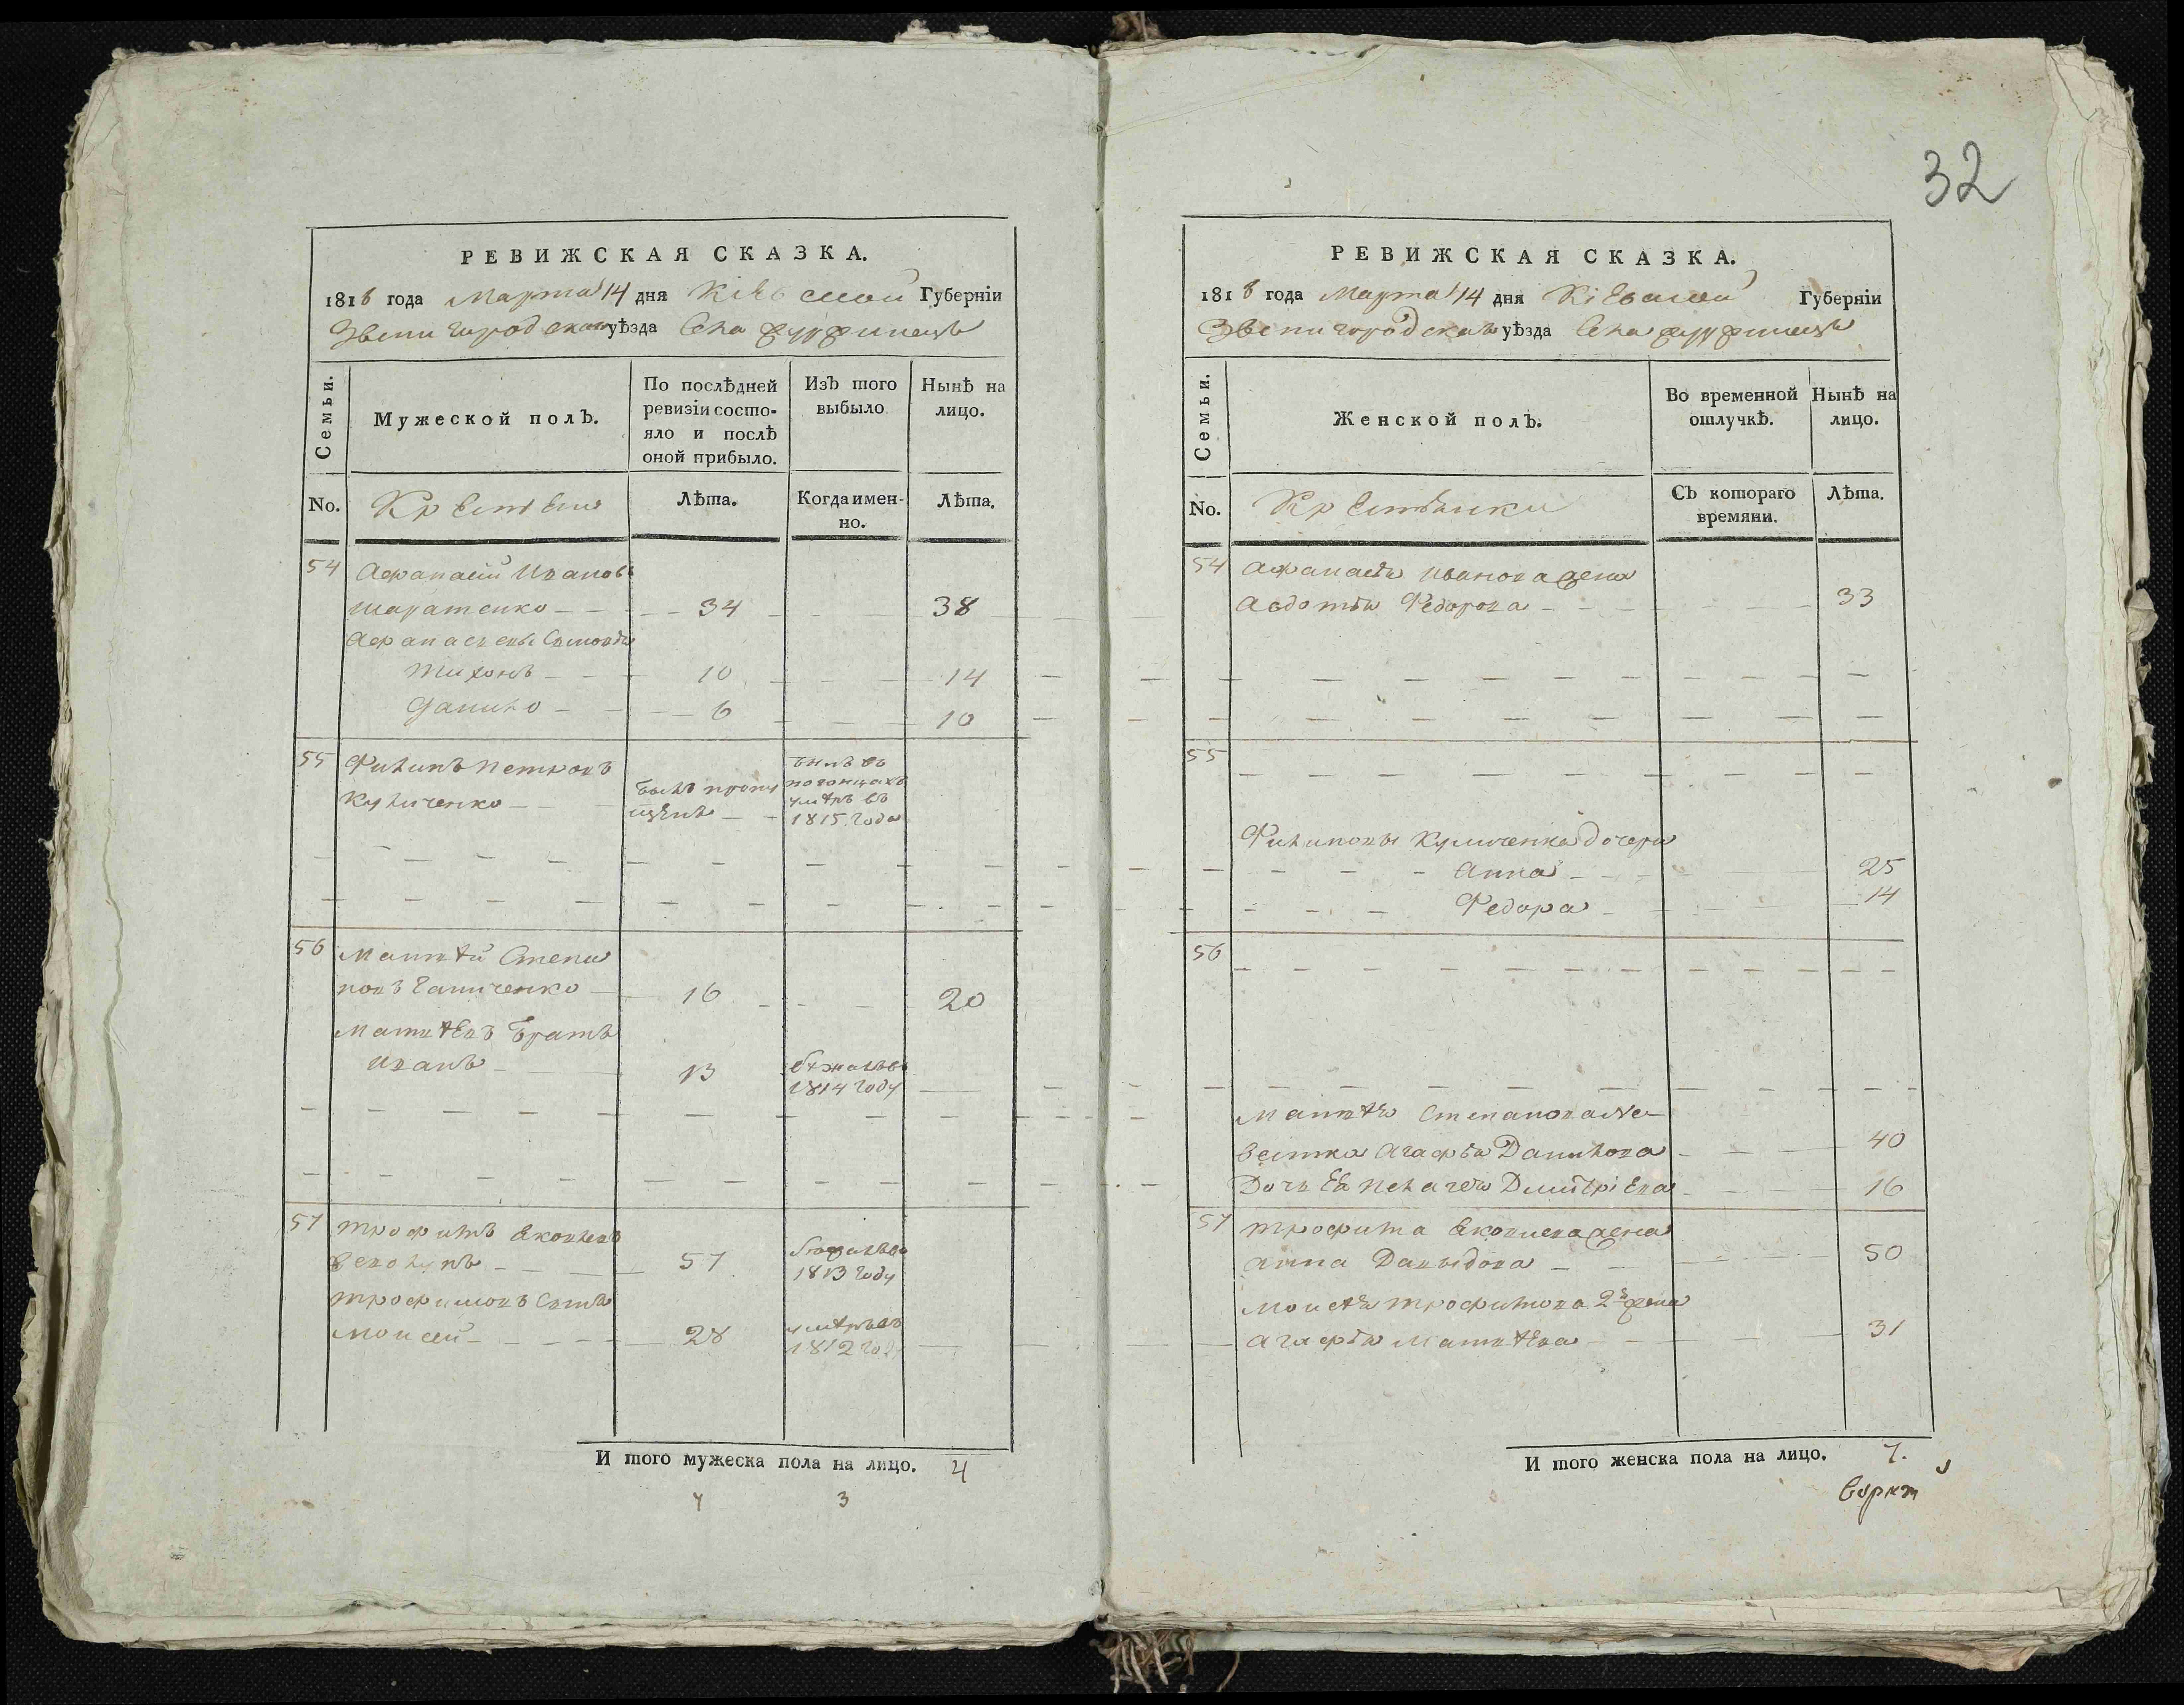 РЕВИЖСКАЯ СКАЗКА.
1816 года Марта 14 дня Кіевской Губерніи
Звенигородскаго уѣзда Села
Семьи.
Мужеской полЪ.
По послѣдней ревизіи состояло и послѣ оной прибыло.
ИзЪ того выбыло
Нынѣ на лицо.
No.
Крестьяне
Лѣта.
Когда именно.
Лѣта.
54 Афанасий Ивановъ
Шаратенко 34 38
Афанасьевы Сыновья
Тихонъ 10 14
Данило 6 10
55 Филипъ Петровъ
Куличенко
Былъ пропущенъ
умѣръ въ
1815. Года
56 Матвѣй Степа
новъ Галиченко 16 20
Матвѣевъ Братъ
Иванъ 13
бѣжалъ въ
1814 Году
57 Трофимъ Яковлевъ
57
1813 Году
Трофимовъ Сынъ
Моисей 28
умѣръ въ
1812 Году
И того мужеска пола на лицо. 4
7 3
32
РЕВИЖСКАЯ СКАЗКА.
1816 года Марта 14 дня Кіевской Губерніи
Звенигородскаго уѣзда Села
Семьи.
Женской полЪ.
Во временной отлучкѣ.
Нынѣ на лицо.
No.
Крестьянки
СЪ котораго времяни.
Лѣта.
54 Афанасья Иванова жена
Авдотья Федорова 33
55
Филиповы Куличенка дочери
Анна 25
Федора 14
56
Матвѣя Степанова Не
вестка Агафья Данилова 40
Дочь Ея Пелагея Дмитріева 16
57 Трофима Яковлева жена
Анна Давыдова 50
Моисѣя Трофимова 2я жена
Агафья Матвѣева 31
И того женска пола на лицо. 7.